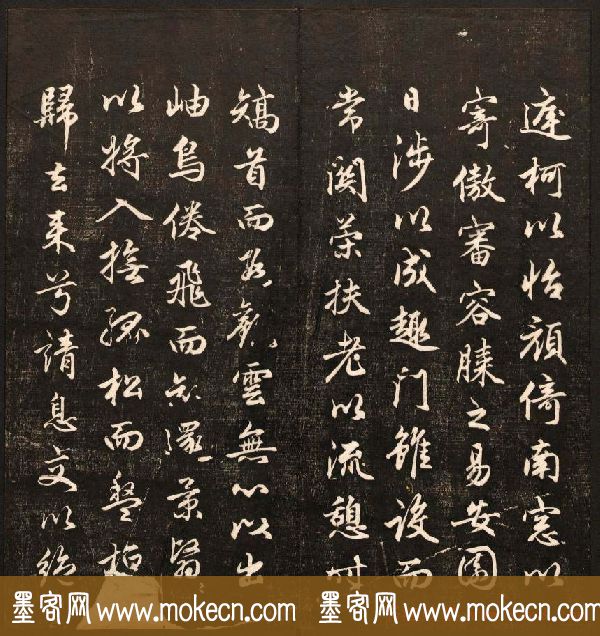 庭柯以怡顔倚南窓以
寄傲審容膝之易安園
日涉以成趣門雖設而
常関策扶老以流憩時
矯首而遐觀雲無心以出
岫鳥倦飛而知還景翳
以將入撫孤松而盤桓
歸去来兮請息交以絶
墨客网 www.mokecn.com 墨客网 www.mokecn.com